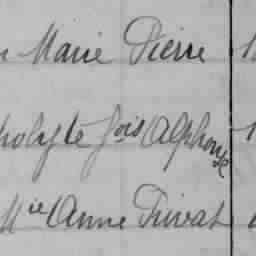 Marie Pierre
polyte fois Alphonse
Mie Anne Privat